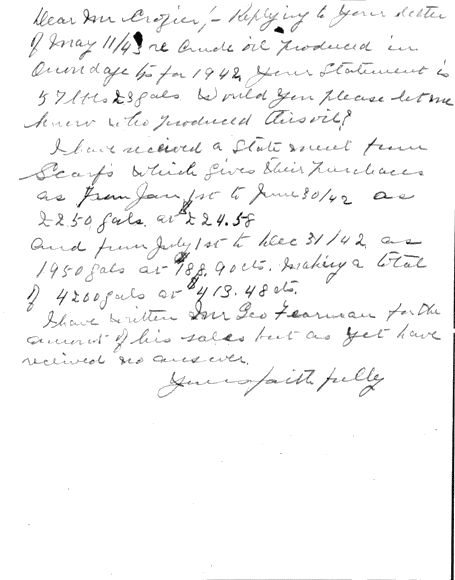 Dear Mr Crozier,- Replying to your letter
of May 11/43 re Crude oil produced in
Onondaga Tp for 1942 Your Statement is
57 bbls 23 gals Would you please let me
know who produced this oil?
I have received a Statement from
Scarfs which gives their purchases
as from Jan 1st to June 30/42 as
2250 gals at $224.58
and from July 1st to Dec 31/42 as
1950 gals at $188.90cts. making a total
of 4200 gals at $413.48cts.
I have written Mr Geo Fearman for the
amount of his sales but as yet have
received no answer.
Yours faithfully